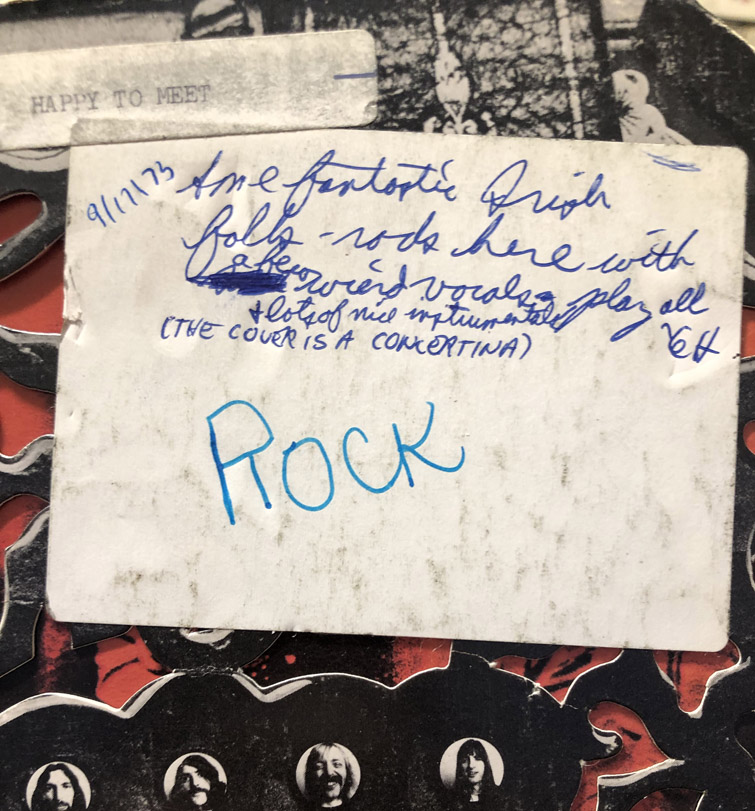 HAPPY TO MEET
9/17/73 Some fantastic Irish
folk-rock here with
a few weird vocals - play all
+ lots of nice instrumentals
(THE COVER IS A CONCERTINA) EH
ROCK